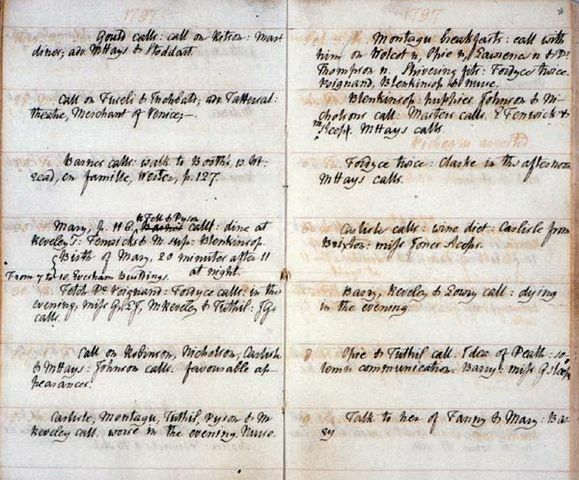 1797
Gould calls: call on Ritson: Mart
dines, adv. MHays & Stoddart
Call on Fuseli & Inchbald; adv. Tattersal:
theatre, Merchant of Venice;—
Barnes calls: walk to Booth's, 10 Wt.
read, en famille, Werter, p. 127.
Mary, p. 116. Fell & Dyson call: dine at
Reveley's: Fenwicks & M. sup: Blenkinsop.
Birth of Mary, 20 minutes after 11
at night.
From 7 to 10, Evesham Buildings.
Fetch Dr Poignand: Fordyce calls: in the
evening, miss G, & J G, M Reveley & Tuthil:
calls.
Call on Robinson, Nicholson, Carlisle
& MHays: Johnson calls. favourable ap
pearances.
Carlisle, Montagu, Tuthil, Dyson & M
Reveley call. worse in the evening. Nurse.
1797
Montagu breakfasts: call with
him on Wolcot n, Opie n, Lawrence n & Dr
Thompson n. Shivering fits: Fordyce twice.
Poignand, Blenkinsop & nurse.
Blenkinsop: puppies. Johnson & Ni
cholsons call: Masters calls. E Fenwick &
M sleep. MHays calls.
Fordyce twice: Clarke in the afternoon
MHays calls.
Carlisle calls: wine diet: Carlisle from
Brixton: miss Jones sleeps.
Barry, Reveley & Lowry call: dying
in the evening
8 Opie & Tuthil call. Idea of Death: so
lemn communication. Barry: miss G sleeps
Talk to her of Fanny & Mary: Bar
ry